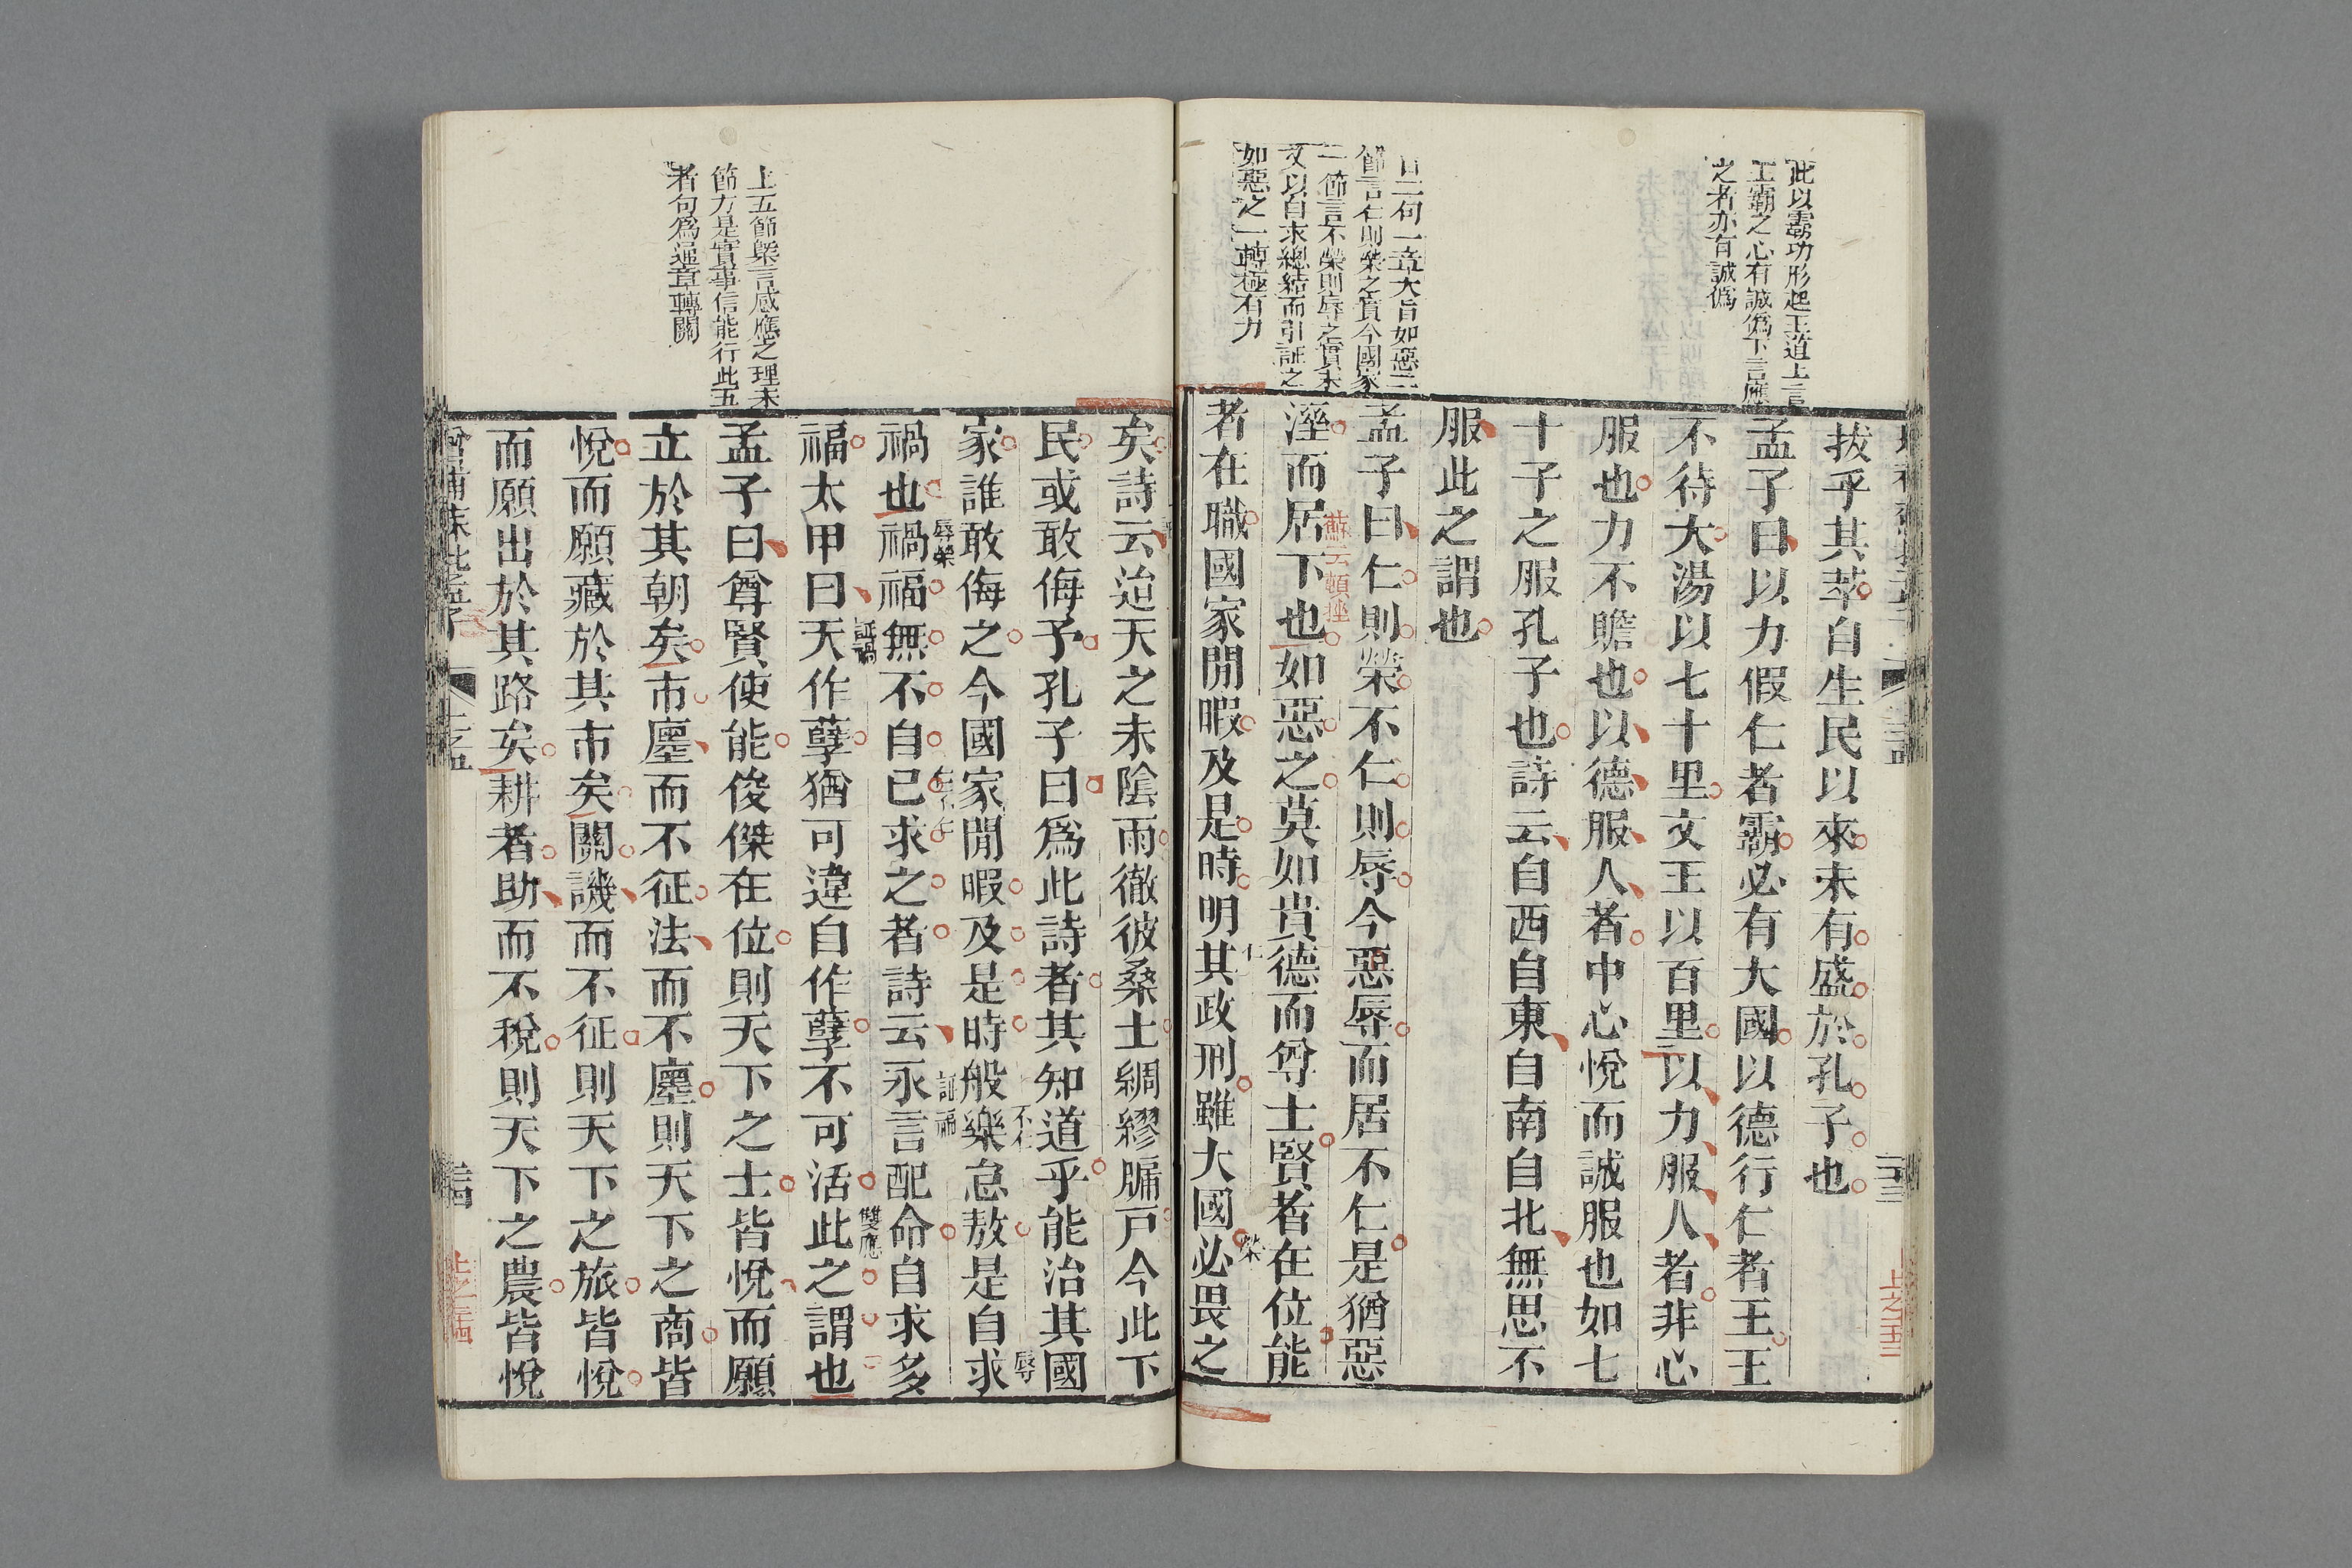 此以霸功形起王道上言
王霸之心有誠僞下言應
之者亦有誠僞
拔乎其萃自生民以來未有盛於孔子也
孟子曰以力假仁者霸霸必有大國以德行仁者王王
不待大湯以七十里文王以百里以力服人者非心
服也力不贍也以德服人者中心悅而誠服也如七
十子之服孔子也詩云自西自東自南自北無思不
服此之謂也
首二句一章大旨如惡二
節言仁則榮之實今國家
二節言不榮則辱之實末
又以自求總結而引証之
如惡之一轉極有力
孟子曰仁則榮不仁則辱今惡辱而居不仁是猶惡
蘇云頓挫
溼而居下也如惡之莫如貴德而尊士賢者在位能
者在職國家閒暇及是時明其政刑雖大國必畏之
榮
矣詩云迨天之未陰雨徹彼桑土綢繆牖戸今此下
民或敢侮予孔子曰爲此詩者其知道乎能治其國
家誰敢侮之今國家閒暇及是時般樂怠敖是自求
不仁
辱
禍也禍福無不自已求之者詩云永言配命自求多
辱榮
証福
福太甲曰天作孽猶可違自作孽不可活此之謂也
証禍
雙應
上五節槩言感應之理末
節方是實事信能行此五
者句爲通章轉關
孟子曰尊賢使能俊傑在位則天下之士皆悅而願
立於其朝矣市廛而不征法而不廛則天下之商皆
悅而願藏於其市矣關譏而不征則天下之旅皆悅
而願出於其路矣耕者助而不稅則天下之農皆悅